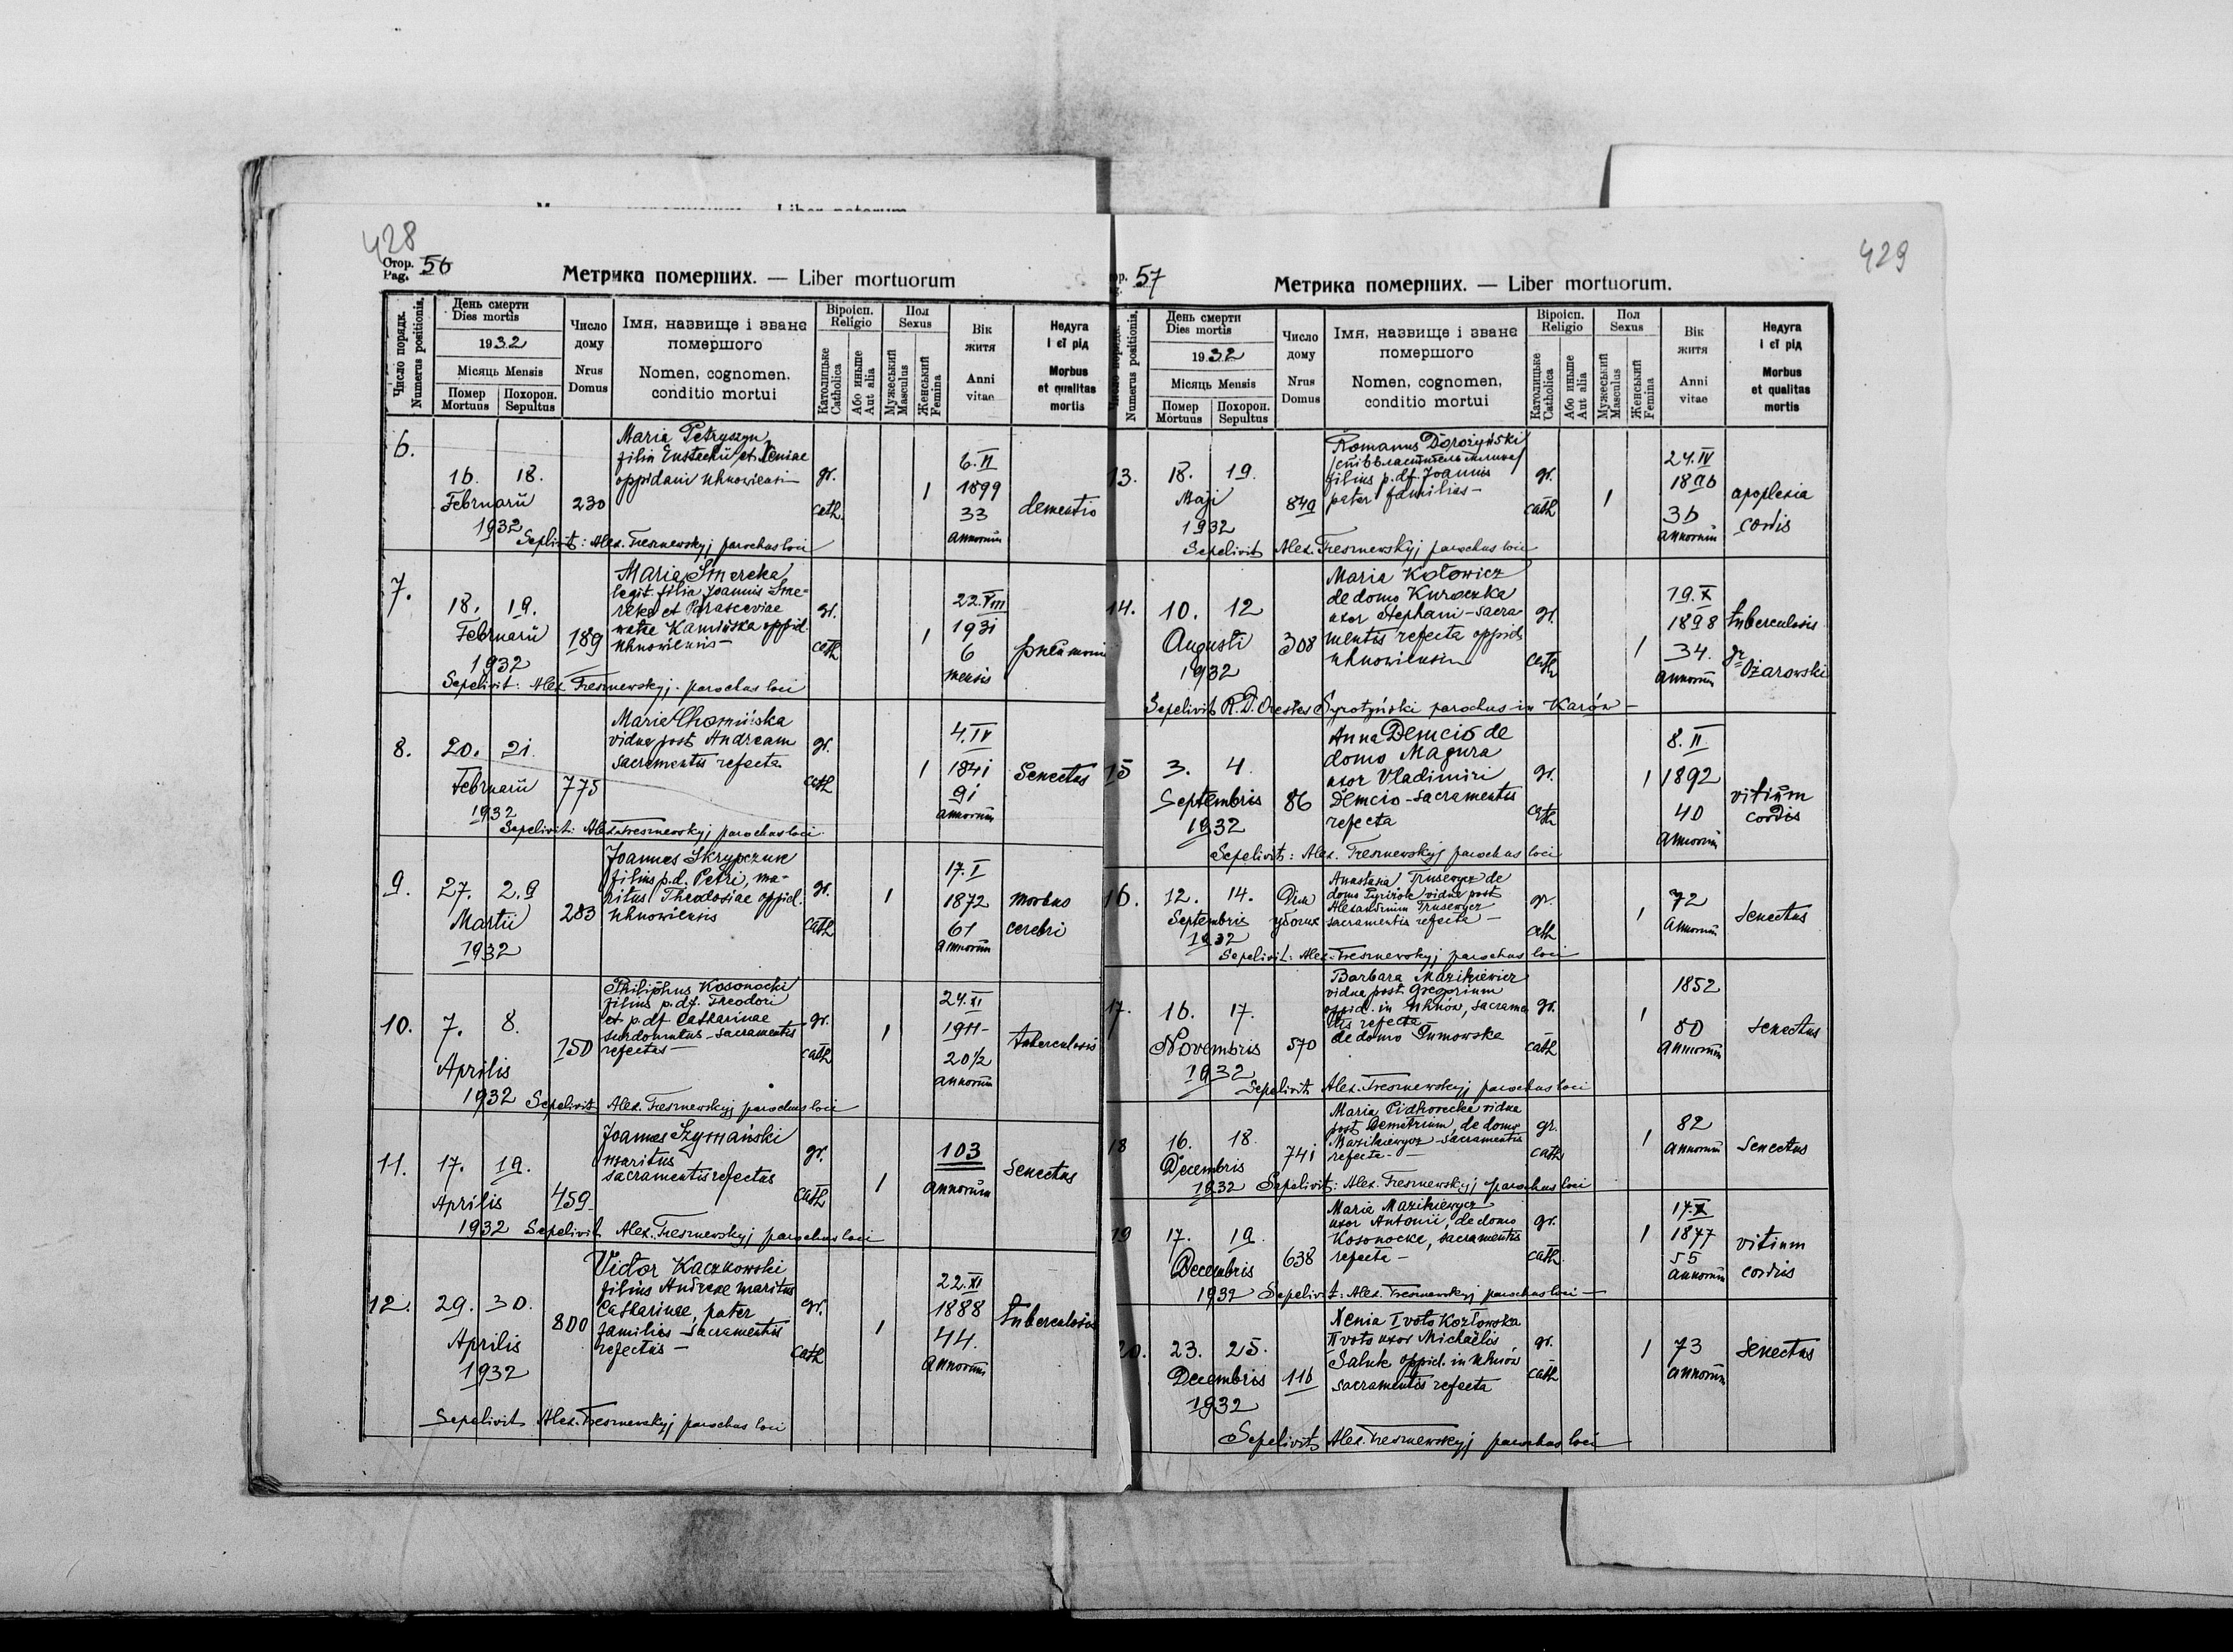 428
Стор. 56
Pag.
Метрика померших. — Liber mortuorum
Число порядк.
Numerus positionis.
День смерти
Dies mortis
1932
Місяць Mensis
Помер
Mortuus
Похорон.
Sepultus
Число
дому
Nrus
Domus
Імя, назвище і зване
помершого
Nomen, cognomen,
conditio mortui
Віроісп.
Religio
Католицьке
Catholica
Або иньше
Aut alia
Пол
Sexus
Мужеський
Masculus
Женський
Femina
Вік
житя
Anni
vitae
Недуга
і єї рід
Morbus
et qualitas
mortis
6.
16. 18.
Februarii
1932
230
Maria Petryszyn
filia Eustachii et Xeniae
oppidani uhnowiensi
gr.
cath.
1
6.II
1899
33
annorum
dementio
Seplivit: Alex. Tresznewskyj parochus loci
7.
18. 19.
Februarii
1932
189
Maria Smereka
legit. filia Joannis Sme-
reka et Parasceviae
natae Kamińska oppid.
uhnowiensis
gr.
cath
1
22.VIII
1931
6
mensis
pneumonia
Sepelivit: Alex Tresznewskyj parochus loci
8.
20. 21.
Februarii
1932
775
Maria Chomińska
vidua post Andream
sacramentis refecta
gr.
cath
1
4.IV
1841
91
annorum
Senectus
Sepelivit: Alex Tresznewskyj parochus loci
9.
27. 2.9
Martii
1932
283
Joannes Skrypczuk
filius p.d. Petri, ma-
ritus Theodosiae oppid.
uhnowiensis
gr.
cath
1
17.I
1872
61
annorum
morbus
cerebri
10.
7. 8.
Aprilis
1932
150
Philiphus Kosonocki
filius p.df. Theodori
et p.df Catharinae
surdomutus - sacramentis
refectus —
gr.
cath
1
24.XI
1911-
20 1/2
annorum
tuberculosis
Sepelivit Alex. Tresznewskyj parochus loci
11.
17. 19.
Aprilis
1932
459
Joannes Szymański
maritus
sacramentis refectus
gr.
cath
1
103
annorum
Senectus
Sepelivit Alex. Tresznewskyj parochus loci
12.
29. 30.
Aprilis
1932
800
Victor Kaczkowski
filius Andreae maritus
Catharinae, pater
familias - sacramentis
refectus —
gr.
cath
1
22.XI
1888
44.
annorum
tuberculosis
Sepelivit Alex. Tresznewskyj parochus loci
429
57
Метрика померших. — Liber mortuorum.
Numerus positionis.
День смерти
Dies mortis
1932
Місяць Mensis
Помер
Mortuus
Похорон.
Sepultus
Число
дому
Nrus
Domus
Імя, назвище і зване
помершого
Nomen, cognomen,
conditio mortui
Віроісп.
Religio
Католицьке
Catholica
Або иньше
Aut alia
Пол
Sexus
Мужеський
Masculus
Женський
Femina
Вік
житя
Anni
vitae
Недуга
і єї рід
Morbus
et qualitas
mortis
13.
18. 19.
Maji
1932
849
Romanus Dorożyński
/співвластитель млина/
filius p.df. Joannis
pater familias —
gr.
cath
1
24.IV
1896
36
annorum
apoplexia
cordis
Sepelivit Alex. Tresznewskyj parochus loci
14.
10. 12
Augusti
1932
308
Maria Kołowicz
de domo Kuroczka
uxor Stephani - sacra
mentis refecta oppid
uhnowiensi
gr.
cath
1
19.X
1898
34.
annorum
tuberculosis
Ożarowski
Sepelivit R.D. Orestes Syrotyński parochus in Karów —
15
3. 4.
Septembris
1932
86
Anna Demcio de
domo Magura
uxor Vladimiri
Demcio - sacramentis
refecta
gr.
cath
1
8.II
1892
40
annorum
vitium
cordis
Sepelivit: Alex. Tresznewskyj parochus loci
16.
12. 14.
Septembris
1932
Дім
убогих
Anastasia Trusewycz de
domo vidua post
Alexandrum Trusewycz
sacramentis refecta —
gr.
cath
1
72
annorum
Senectus
Sepelivit: Alex. Tresznewskyj parochus loci
17.
16. 17.
Novembris
1932
570
Barbara Mazikiewicz
vidua post Gregorium
oppid. in Uhnów, sacrame
tis refecta
de domo Dumowska
gr.
cath
1
1852
80
annorum
Senectus
Sepelivit Alex. Tresznewskyj parochus loci
18
16. 18.
Decembris
1932
741
Maria Pidhorecka vidua
post Demetrium, de domo
Mazikiewycz - sacramentis
refecta -
gr.
cath
1
82
annorum
Senectus
Sepelivit: Alex. Tresznewskyj parochus loci
19
17. 19.
Decembris
1932
638
Maria Mazikiewycz
uxor Antonii, de domo
Kosonocka, sacramentis
refecta —
gr.
cath.
1
17.X
1877
55
annorum
vitium
cordis
Sepelivit: Alex. Tresznewskyj parochus loci —
20.
23. 25.
Decembris
1932
116
Xenia I voto Kozłowska
II voto uxor Michaëlis
Saluk oppid. in Uhnów
sacramentis refecta
gr.
cath
1
73
annorum
Senectus
Sepelivit Alex. Tresznewskyj parochus loci